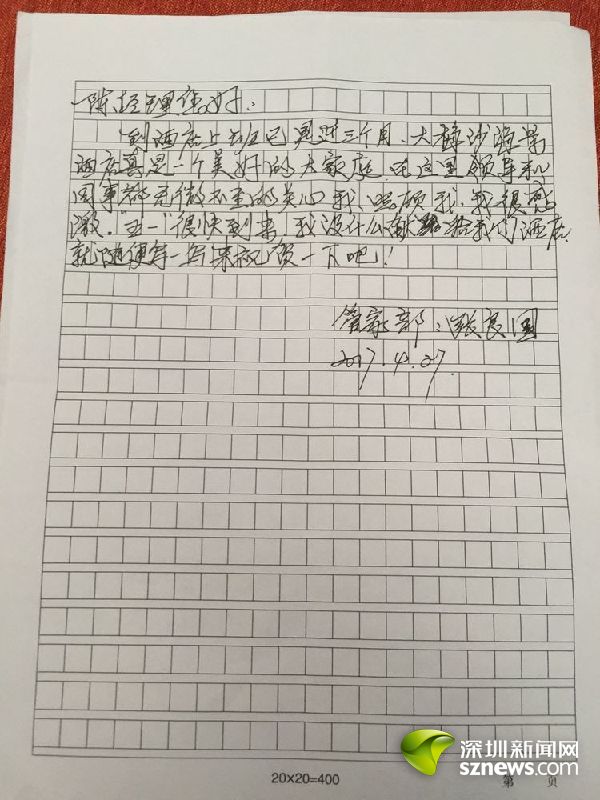 陈经理您好：
到酒店上班已是近三个月、大梅沙海景
酒店真是一个美好的大家庭、在这里领导和
同事都无微不至的关心我，照顾我，我很感
激。"五一"很快到来，我没什么献给我们酒店，
就随便写一首祝贺一下吧！
管家部：张良国
2017.4.27.
深圳新闻网
sznews.com
20×20=400
第 页